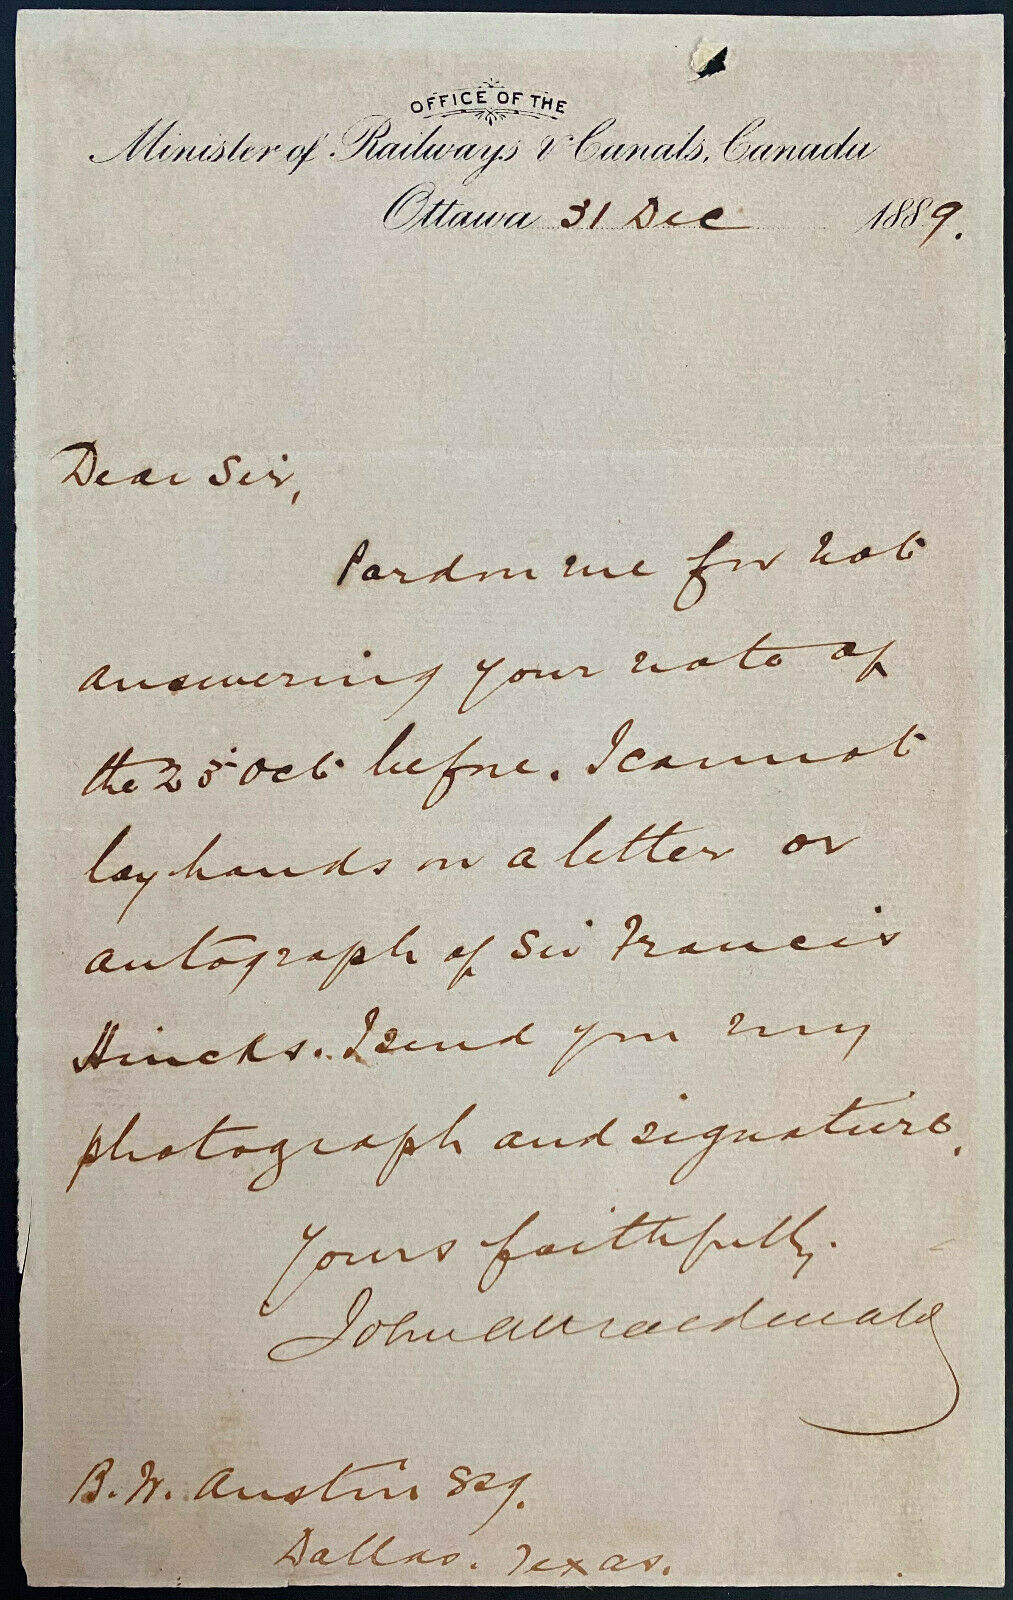 OFFICE OF THE
Minister of Railways & Canals, Canada
Ottawa 31 Dec 1889.
Dear Sir,
Pardon me for not
answering your note of
the 25 Oct before. I cannot
lay hands on a letter or
autograph of Sir Francis
Hincks. I send you my
photograph and signature.
Yours faithfully.
John A Macdonald
B. W. Austin Esq.
Dallas. Texas.